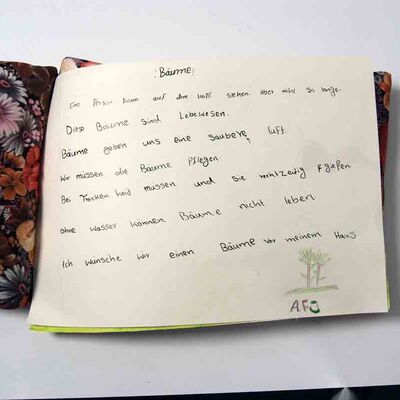 : Bäume :
Eine Person kann auf dem kopf stehen. aber nicht so lange.
Diese Bäume sind Lebewesen.
Bäume geben uns eine saubere, luft.
Wir müssen die Bäume Pflegen.
Bei Trocken heid müssen und sie rechtzeitig gießen.
ohne wasser können Bäume nicht leben
Ich wünsche wir einen Bäume vor meinem Haus
AFJ